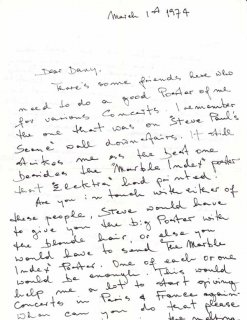 March 1st 1974
Dear Dany.
There's some friends here who
need to do a good Poster of me
for various Concerts. I remember
the one that was on Steve Paul's
Scene' wall downstairs. It still
strikes me as the best one
besides the "Marble Index" poster
that Elektra had printed!
Are you in touch with either of
these people, Steve would have
to give you the big Poster with
the blonde hair, or else you
would have to send the Marble
Index Poster. One of each or one
would be enough. This would
help me a lot to start giving
Concerts in Paris & France again.
When can you do that
please the